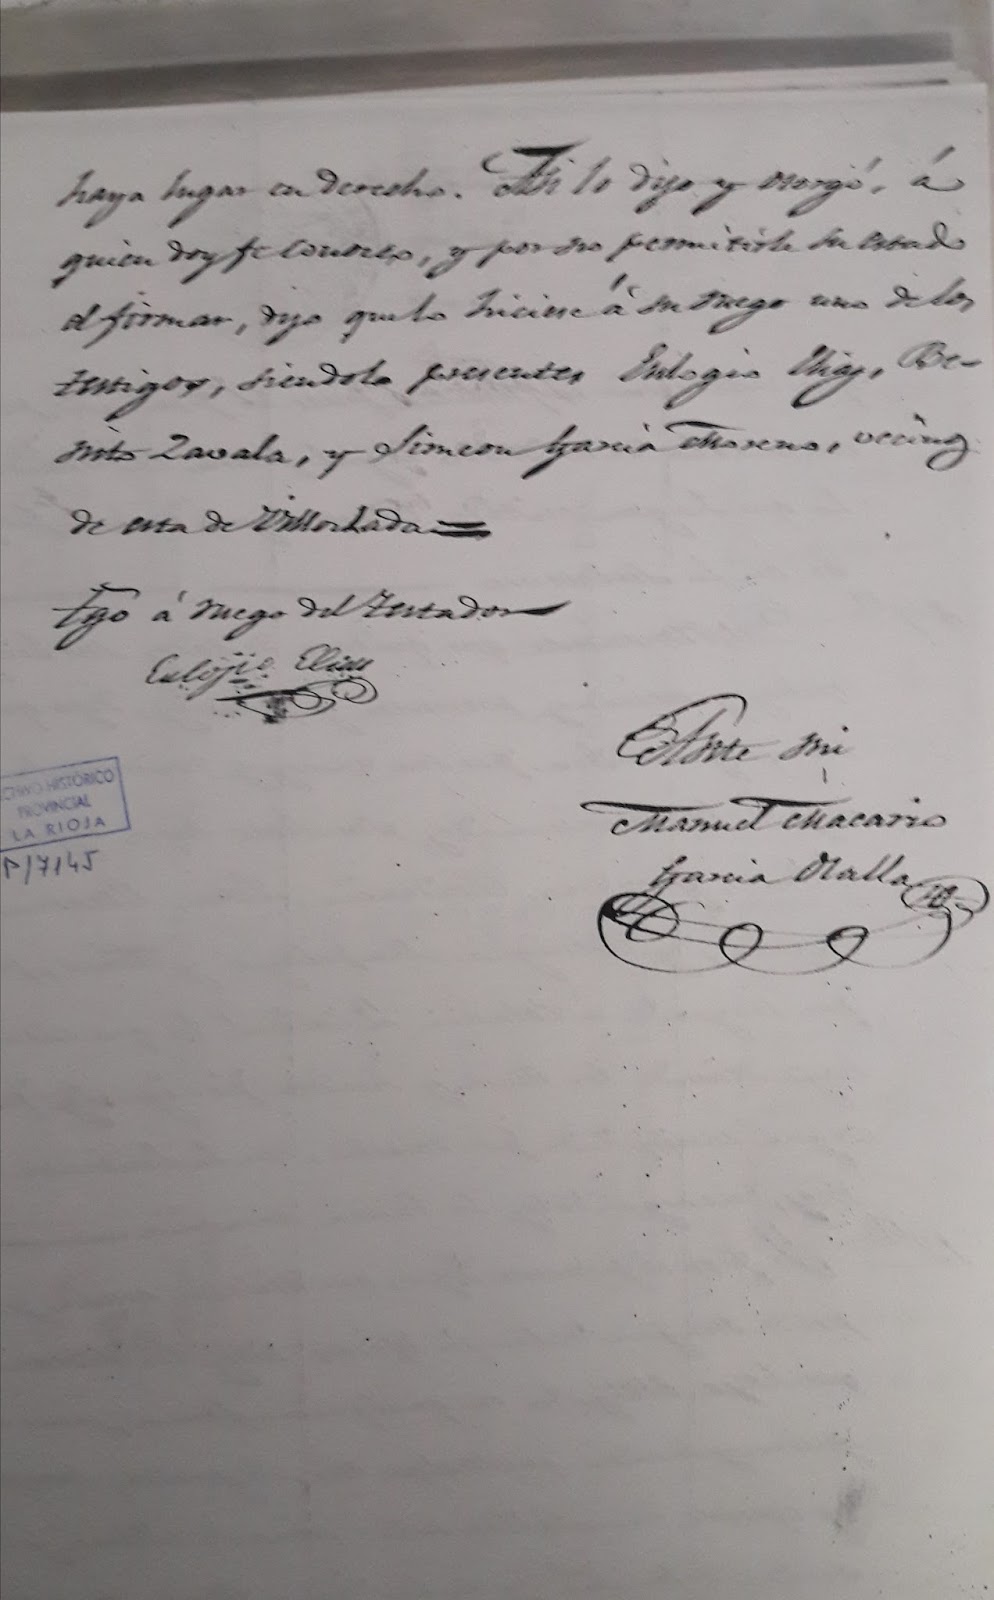 haya lugar en derecho. Asi lo dijo y otorgó, á
quien doy fe conozco, y por no permitirle su estado
el firmar, dijo que lo hiciese á su ruego uno de los
testigos, siendolo presentes Eulogio Elias, Be-
nito Zavala, y Simeon Garcia Moreno, vecinos
de esta de Villoslada
Tgo á ruego del Testador
Eulojio Elias
Ante mi
Manuel Macario
Garcia Olalla
CHIVO HISTÓRICO
PROVINCIAL
LA RIOJA
P/7145